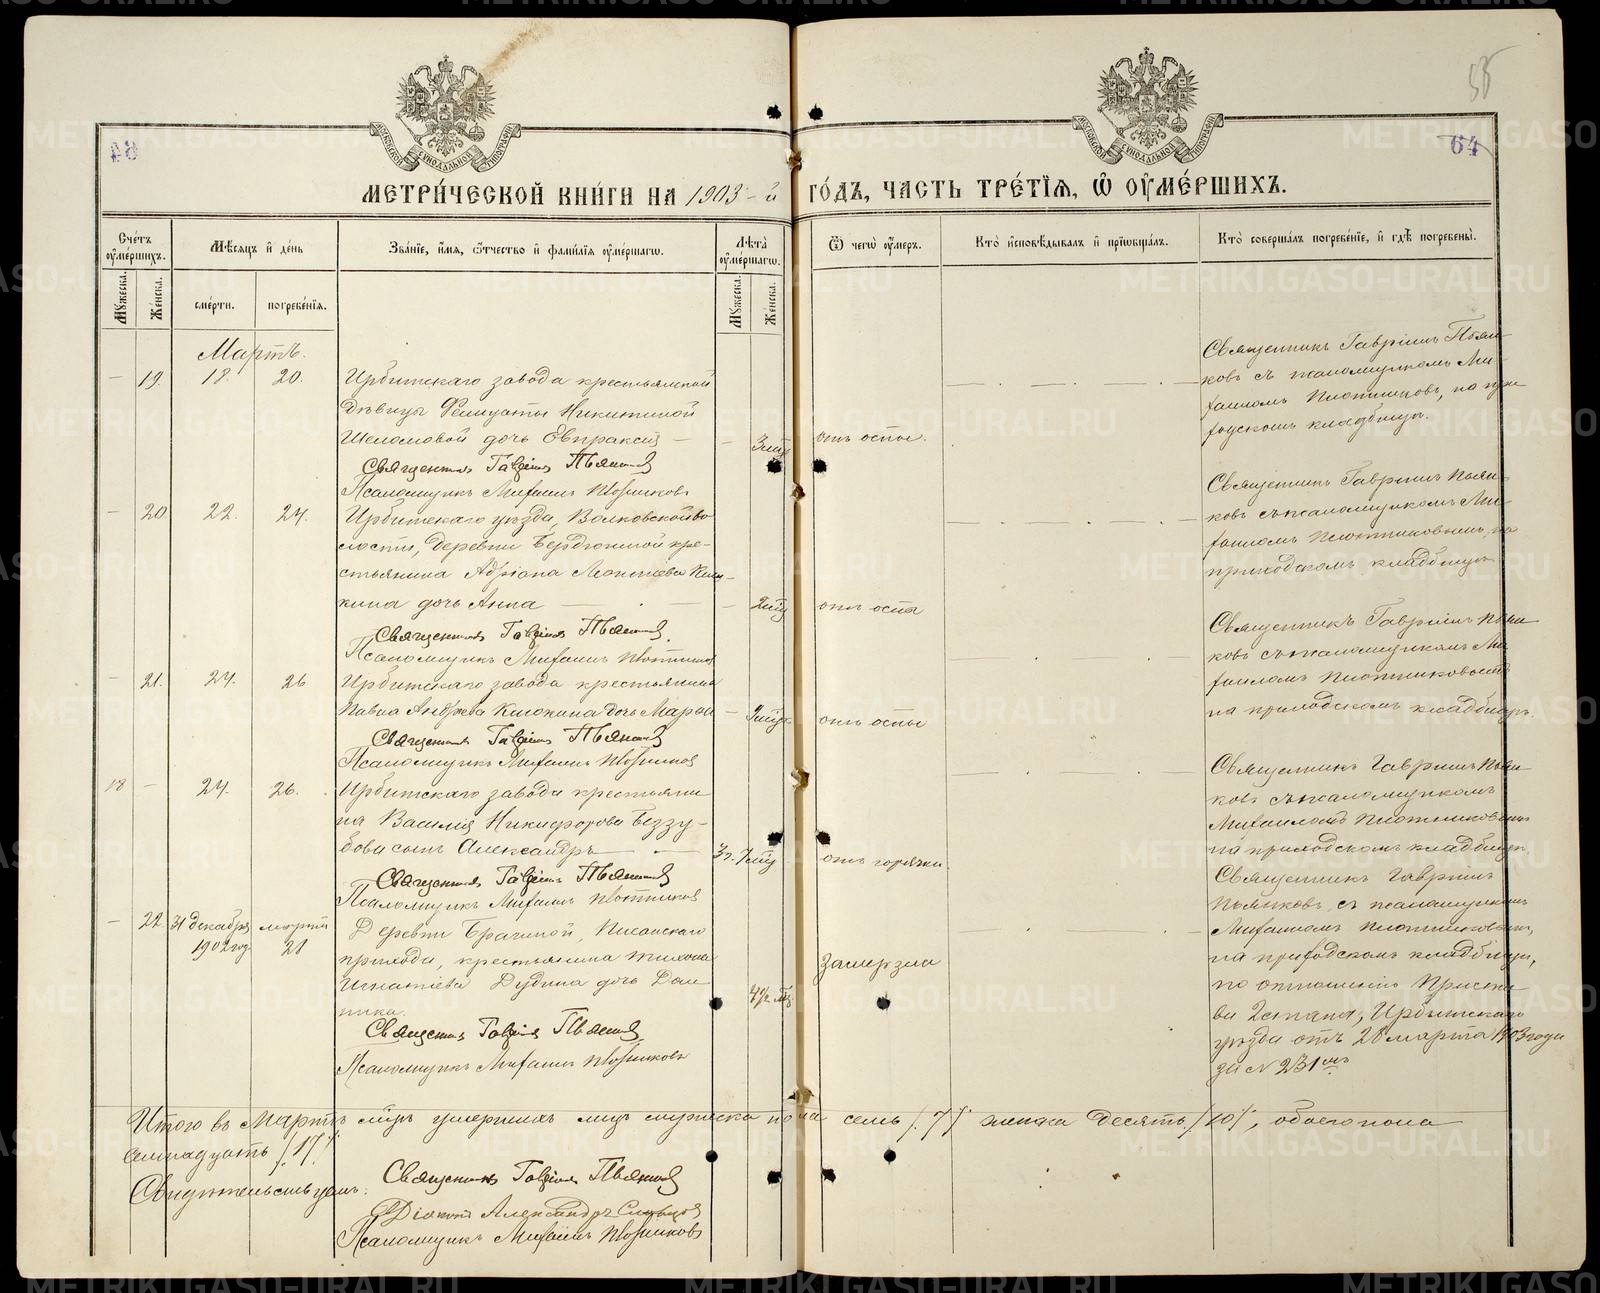 64
МОСКОВСКОЙ СѴНОДАЛЬНОЙ ТИПОГРАФІИ
МОСКОВСКОЙ СѴНОДАЛЬНОЙ ТИПОГРАФІИ
МЕТРИ́ЧЕСКОЙ КНИ́ГИ НА 1903-й ГО́ДЪ, ЧАСТЬ ТРЕ́ТІЯ, Ѡ ОУМЕ́РШИХЪ.
Сче́тъ оуме́ршихъ.
Мѣсяцъ и де́нь
Зва́ніе, и́мя, ѻ́тчество и фами́лія оуме́ршагѡ.
Лѣта̀ оуме́ршагѡ.
Ѿ чегѡ̀ оу́меръ.
Кто̀ исповѣ́дывалъ и пріѡбща́лъ.
Кто̀ соверша́лъ погребе́ніе, и гдѣ̀ погребены̀.
Мꙋ́жеска.
Же́нска.
сме́рти.
погребе́нія.
Мꙋ́жеска.
Же́нска.
Мартъ.
— 19. 18. 20.
Ирбитскаго завода крестьянской
дѣвицы Никитиной
Шеломовой дочь Евпраксія —
— 3 мѣс
отъ оспы.
Священникъ Гавріилъ Пьянковъ
Псаломщикъ Михаилъ Плотниковъ
Священникъ Гавріилъ Пьян-
ковъ съ псаломщикомъ Ми-
хаиломъ Плотниковымъ, на при-
ходскомъ кладбищѣ.
— 20. 22. 24.
Ирбитскаго уѣзда, Волковской во-
лости, деревни Бердюгиной кре-
стьянина Адріана Леонтіева
кина дочь Анна —
— 2 мѣс
отъ оспы
Священникъ Гавріилъ Пьянковъ.
Псаломщикъ Михаилъ Плотниковъ
Священникъ Гавріилъ Пьян-
ковъ съ псаломщикомъ Ми-
хаиломъ Плотниковымъ, на
приходскомъ кладбищѣ
— 21. 24. 26
Ирбитскаго завода крестьянина
Павла Андреева Клюкина дочь Марія
— 9 мѣс
отъ оспы
Священникъ Гавріилъ Пьянковъ
Псаломщикъ Михаилъ Плотниковъ
Священникъ Гавріилъ Пьян-
ковъ съ псаломщикомъ Ми-
хаиломъ Плотниковымъ
на приходскомъ кладбищѣ.
18 — 24. 26.
Ирбитскаго завода крестьяни-
на Василія Никифорова Беззу-
бова сынъ Александръ —
3 г. 7 мѣс
отъ горячки.
Священникъ Гавріилъ Пьянковъ
Псаломщикъ Михаилъ Плотниковъ
Священникъ Гавріилъ Пьян-
ковъ съ псаломщикомъ
Михаиломъ Плотниковымъ
на приходскомъ кладбищѣ.
— 22. 31 декабря 1902 год. марта 21
Деревни Брагиной, Писанскаго
прихода, крестьянина Тихона
Игнатіева Дудина дочь Дом-
ника.
замерзла
Священникъ Гавріилъ Пьянковъ
Псаломщикъ Михаилъ Плотниковъ
Священникъ Гавріилъ
Пьянковъ, съ псаломщикомъ
Михаиломъ Плотниковымъ,
на приходскомъ кладбищѣ,
по отношенію Приста-
ва 2 стана, Ирбитскаго
уѣзда отъ 20 марта 1903 года
за № 231мъ
Итого въ Мартѣ м-цѣ умершихъ лицъ мужска пола семь /7/ женска десять /10/, обоего пола
семнадцать /17/.
Свидѣтельствуемъ:
Священникъ Гавріилъ Пьянковъ
Діаконъ Александръ
Псаломщикъ Михаилъ Плотниковъ